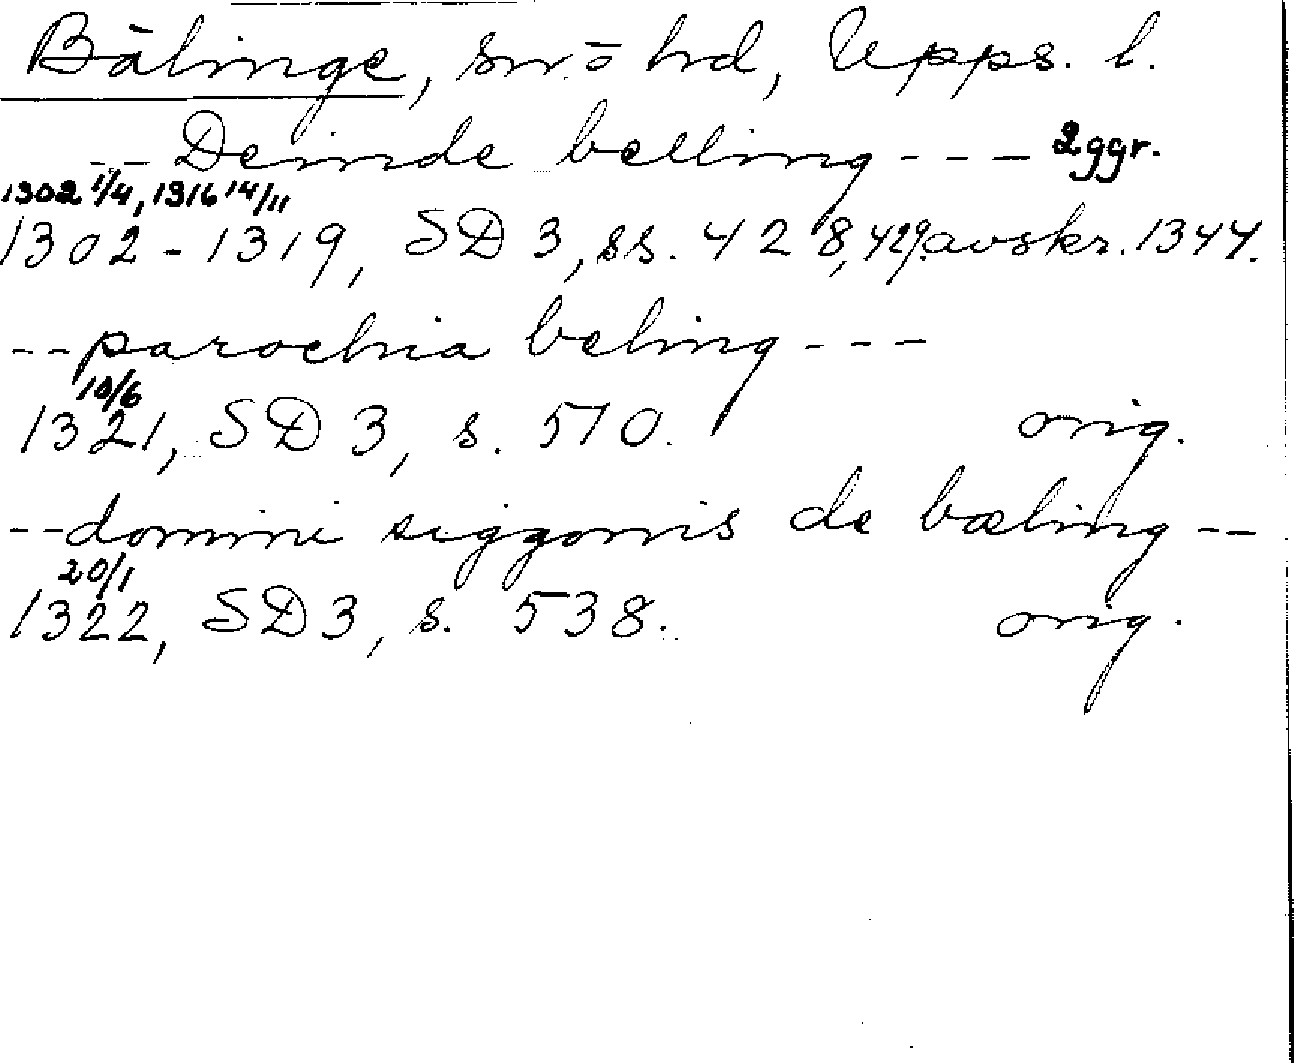 Bälinge, sn.= hd, Upps. l.
-- Deinde belling --- 2ggr.
1302 1/4, 1316 14/11
1302-1319, SD 3, ss. 428, 429. avskr. 1344.
-- parochia beling ---
10/6
1321, SD 3, s. 510. orig.
-- domini siggonis de bæling --
20/1
1322, SD 3, s. 538. orig.